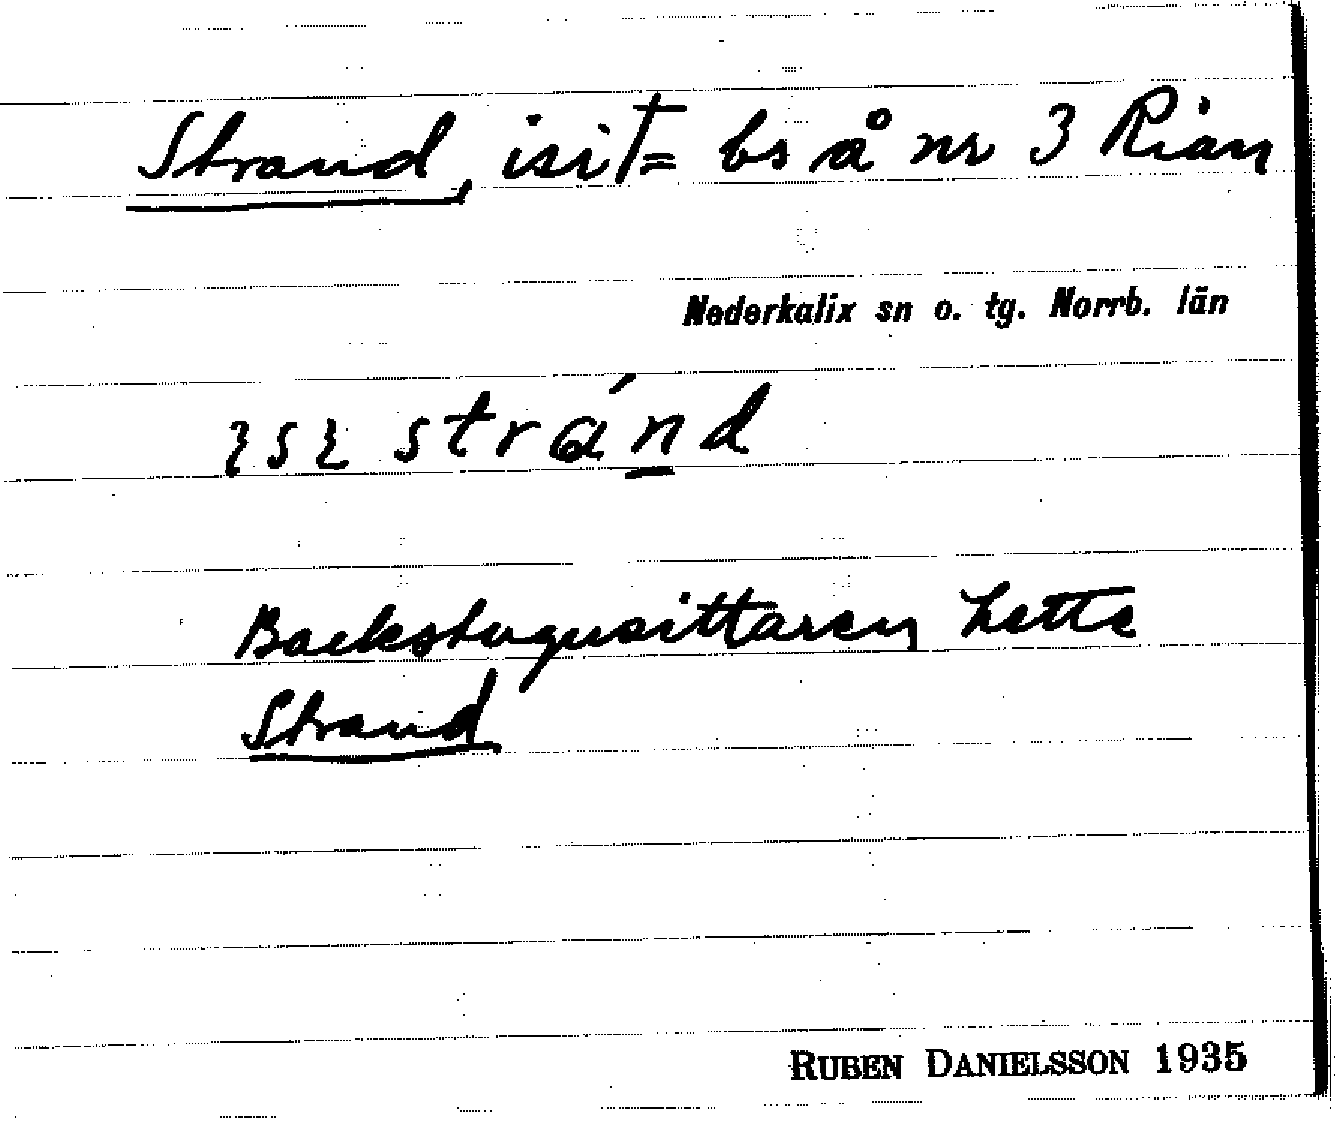 Strand, isit† = bs å nr 3 Rian
Nederkalix sn o. tg. Norrb. län
stránd
Backstugusittaren hette
Strand
RUBEN DANIELSSON 1935